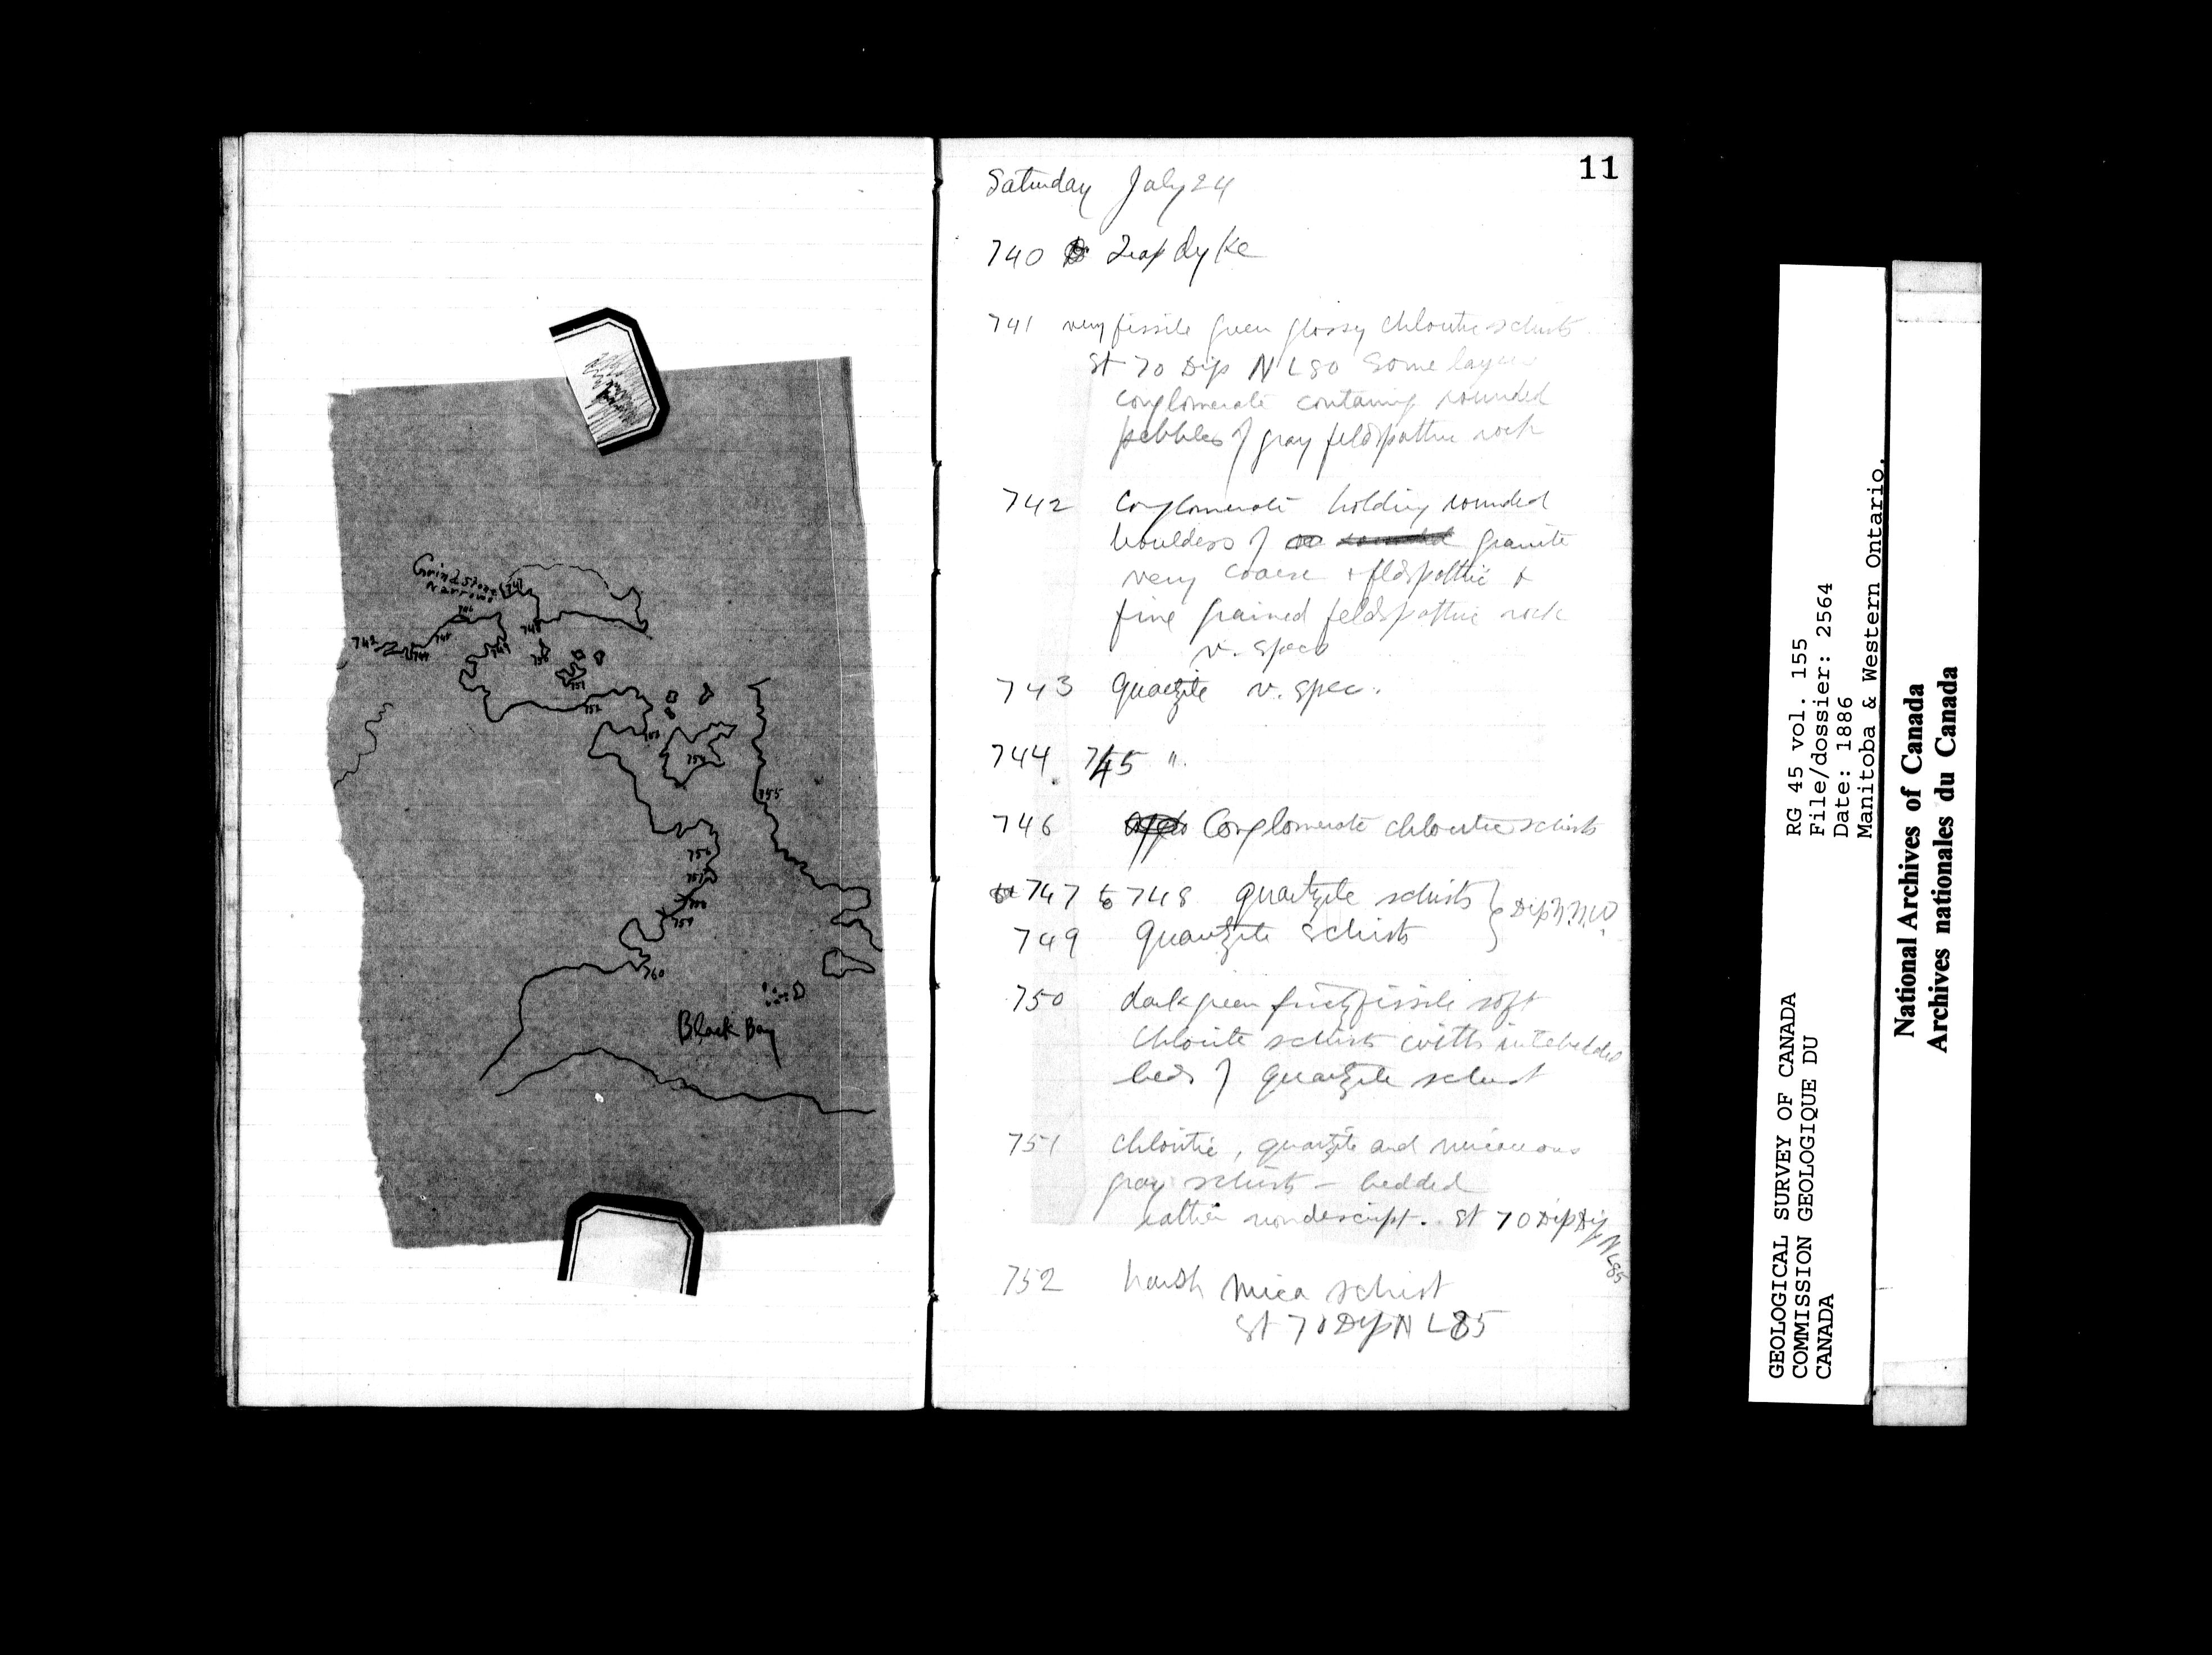 11
Saturday July 24
740 Trap dyke
741 very fissile green glossy chloritic schists
St 70 Dip N L 80 Some layers
conglomerate containing rounded
pebbles of gray feldspathic rock
742 Conglomerate holding rounded
boulders of granite
very coarse + fldspathic &
fine grained feldspathic rock
v. spec
743 quartzite v. spec.
744 745 "
746 Conglomerate chloritic schists
747 to 748 quartzite schists } Dip N.N.W.
749 quartzite schists
750 dark green fissile soft
chlorite schists with interbedded
beds of quartzite schist
751 chloritic, quartzite and micaceous
gray schists – bedded
rather nondescript. St 70 Dip Dip
N L 85
752 harsh mica schist
St 70 Dip N L 85
Grindstone
Narrows
747
746
743
745
744
748
749
750
751
752
753
754
755
756
757
758
759
760
Black Bay
GEOLOGICAL SURVEY OF CANADA
COMMISSION GEOLOGIQUE DU
CANADA
RG 45 vol. 155
File/dossier: 2564
Date: 1886
Manitoba & Western Ontario.
National Archives of Canada
Archives nationales du Canada